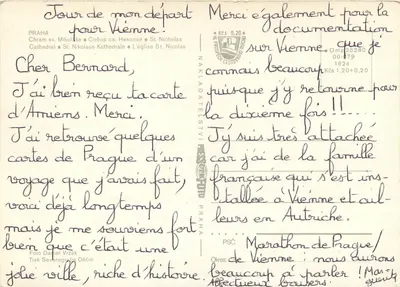 Jour de mon départ
pour Vienne.
PRAHA
Chrám sv. Mikuláše
Cathedral St. Nikolaus Kathedrale L'église St. Nicolas
Cher Bernard,
J'ai bien reçu ta carte
d'Amiens. Merci.
J'ai retrouvé quelques
cartes de Prague d'un
voyage que j'avais fait,
voici déjà longtemps
mais je me souviens fort
bien que c'était une
jolie ville, riche d'histoire.
NAKLADATELSTVÍ
PRAHA
Merci également pour la
documentation
sur Vienne que je
connais beaucoup
puisque j'y retourne pour
la dixième fois!!
J'y suis très attachée
car j'ai de la famille
française qui s'est ins-
tallée à Vienne et ail-
leurs en Autriche.
PSČ
Marathon de Prague/
de Vienne : nous aurons
beaucoup à parler!
affectueux baisers.